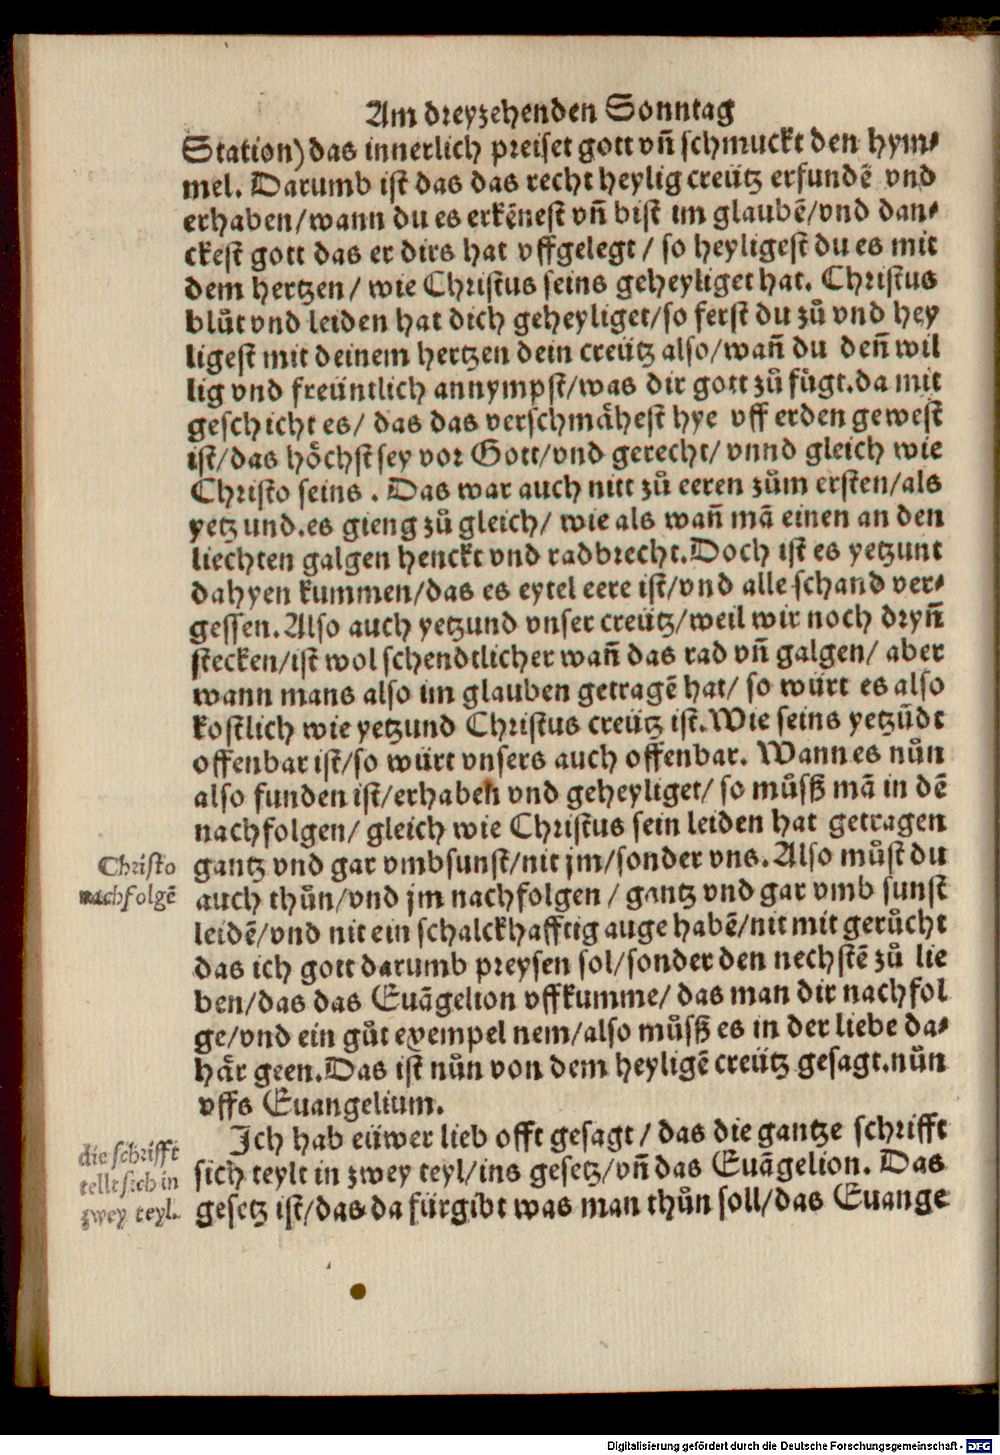 Am dreyzehenden Sonntag
Station) das innerlich preiset gott vñ schmuckt den hym⸗
mel. Darumb ist das das recht heylig creütz erfundẽ vnd
erhaben/wann du es erkẽnest vñ bist im glaubẽ/vnd dan⸗
ckest gott das er dirs hat vffgelegt / so heyligest du es mit
dem hertzen / wie Christus seins geheyliget hat. Christus
blůt vnd leiden hat dich geheyliget/so ferst du zů vnd hey
ligest mit deinem hertzen dein creütz also/wañ du deñ wil
lig vnd freüntlich annympst/was dir gott zů fügt.da mit
geschicht es/ das das verschmähest hye vff erden gewest
ist/das höchst sey vor Gott/vnd gerecht/ vnnd gleich wie
Christo seins . Das war auch nitt zů eeren zům ersten/als
yetz und.es gieng zů gleich/ wie als wañ mã einen an den
liechten galgen henckt vnd radbrecht.Doch ist es yetzunt
dahyen kummen/das es eytel eere ist/vnd alle schand ver⸗
gessen.Also auch yetzund vnser creütz/weil wir noch dryñ
stecken/ist wol schendtlicher wañ das rad vñ galgen/ aber
wann mans also im glauben getragẽ hat/ so würt es also
kostlich wie yetzund Christus creütz ist.Wie seins yetzũdt
offenbar ist/so würt vnsers auch offenbar. Wann es nůn
also funden ist/erhaben vnd geheyliget/ so můsß mã in dẽ
nachfolgen/ gleich wie Christus sein leiden hat getragen
Christo
nachfolgẽ
gantz vnd gar vmbsunst/nit jm/sonder vns.Also můst du
auch thůn/vnd jm nachfolgen / gantz vnd gar vmb sunst
leidẽ/vnd nit ein schalckhafftig auge habẽ/nit mit gerůcht
das ich gott darumb preysen sol/sonder den nechstẽ zů lie
ben/das das Euãgelion vffkumme/ das man dir nachfol
ge/vnd ein gůt exempel nem/also můsß es in der liebe da⸗
här geen.Das ist nůn von dem heyligẽ creütz gesagt.nůn
vffs Euangelium.
Ich hab eüwer lieb offt gesagt / das die gantze schrifft
die schrifft
teilt sich in
zwey teyl.
sich teylt in zwey teyl/ins gesetz/vñ das Euãgelion. Das
gesetz ist/das da fürgibt was man thůn soll/das Euange
Digitalisierung gefördert durch die Deutsche Forschungsgemeinschaft - DFG